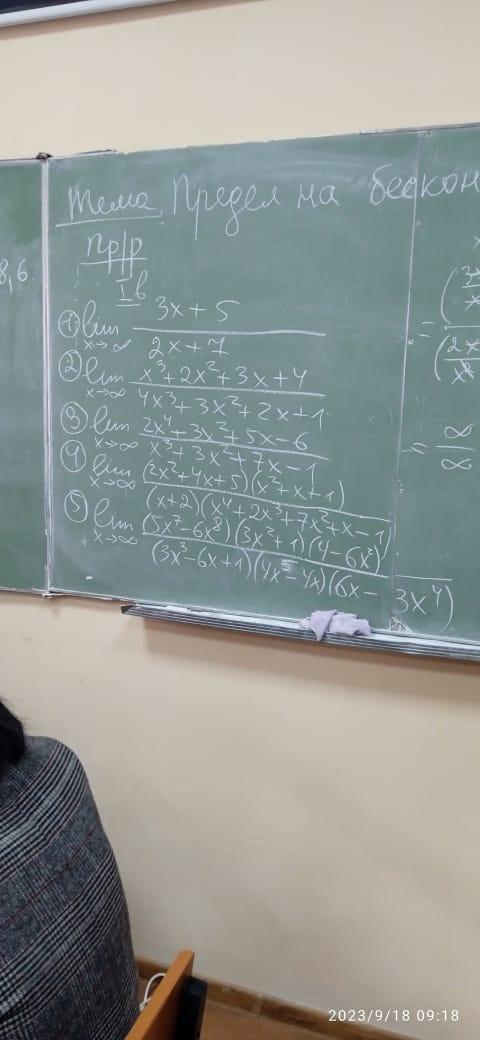 Тема Предел на бескон
пр/р
I в
8,6
① lim x→∞ 3x+5 / 2x+7
② lim x→∞ x³+2x²+3x+4 / 4x³+3x²+2x+1
③ lim x→∞ 2x⁴+3x²+5x-6 / x³+3x²+7x-1
④ lim x→∞ (2x²+4x+5)(x²+x+1) / (x+2)(x⁴+2x³+7x²+x-1)
⑤ lim x→∞ (5x⁷-6x⁸)(3x³+1)(4-6x²) / (3x³-6x+1)(4x⁵-4x)(6x-3x⁴)
= ∞/∞
2023/9/18 09:18